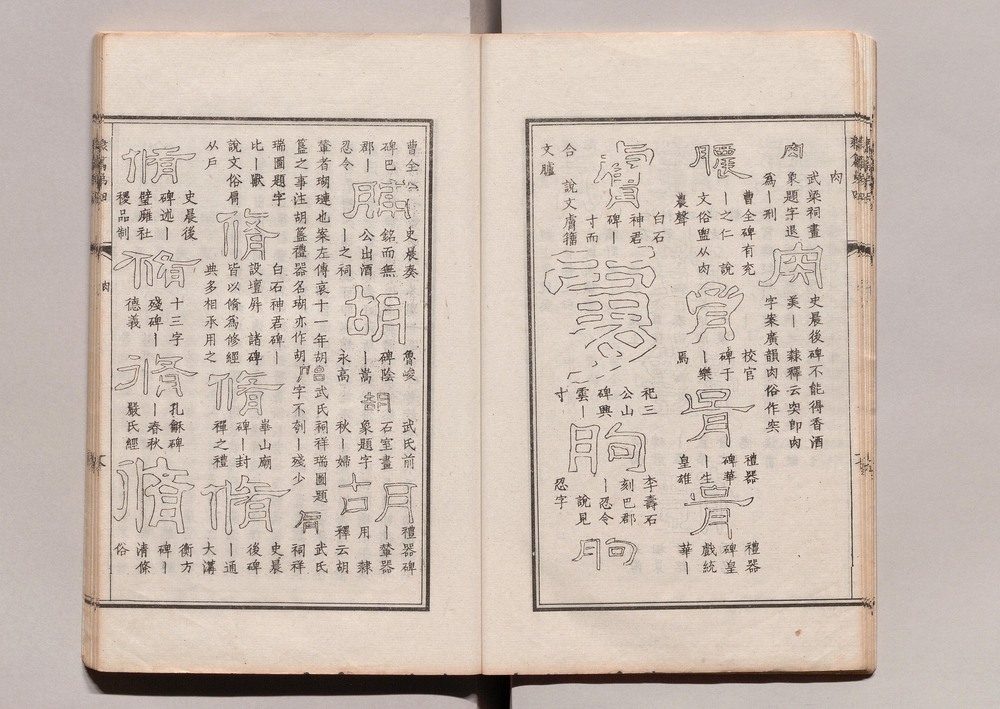 肉
肉
武梁祠畫
象題字退
爲—刑
肉
史晨後碑不能得香酒
美— 隸釋云宍即肉
字案廣韻肉俗作宍
膿
曹全碑有兖
—之仁 說
文俗盥从肉
農聲
胥
校官
碑于
—樂
焉
胥
禮器
碑華
—生
皇雄
胥
禮器
碑皇
戲統
華—
膚
白石
神君
碑—
寸而
合 說文膚籒
文臚
祀三
公山
碑興
雲—
寸
朐
李壽石
刻巴郡
—忍令
說見
忍字
朐
曹全
碑巴
郡—
忍令
脯
史晨奏
銘而無
公出酒
—之祠
胡
魯峻
碑陰
—嵩
永高
胡
武氏前
石室畫
象題字
秋—婦
胡
禮器碑
—輦器
用 隸
釋云胡
輦者瑚璉也案左傳哀十一年胡
簋之事注胡簋禮器名瑚亦作胡
武氏祠祥瑞圖題
字不刳—殘少
肩
武氏
祠祥
瑞圖題字
比—獸
說文俗肩
从戶
脩
白石神君碑—
設壇屏 諸碑
皆以脩爲修經
典多相承用之
脩
華山廟
碑—封
禪之禮
脩
史晨
後碑
—通
大溝
脩
史晨後
碑述—
璧廱社
稷品制
脩
十三字
殘碑—
德義
脩
孔龢碑
—春秋
嚴氏經
脩
衡方
碑—
清條
俗
肉